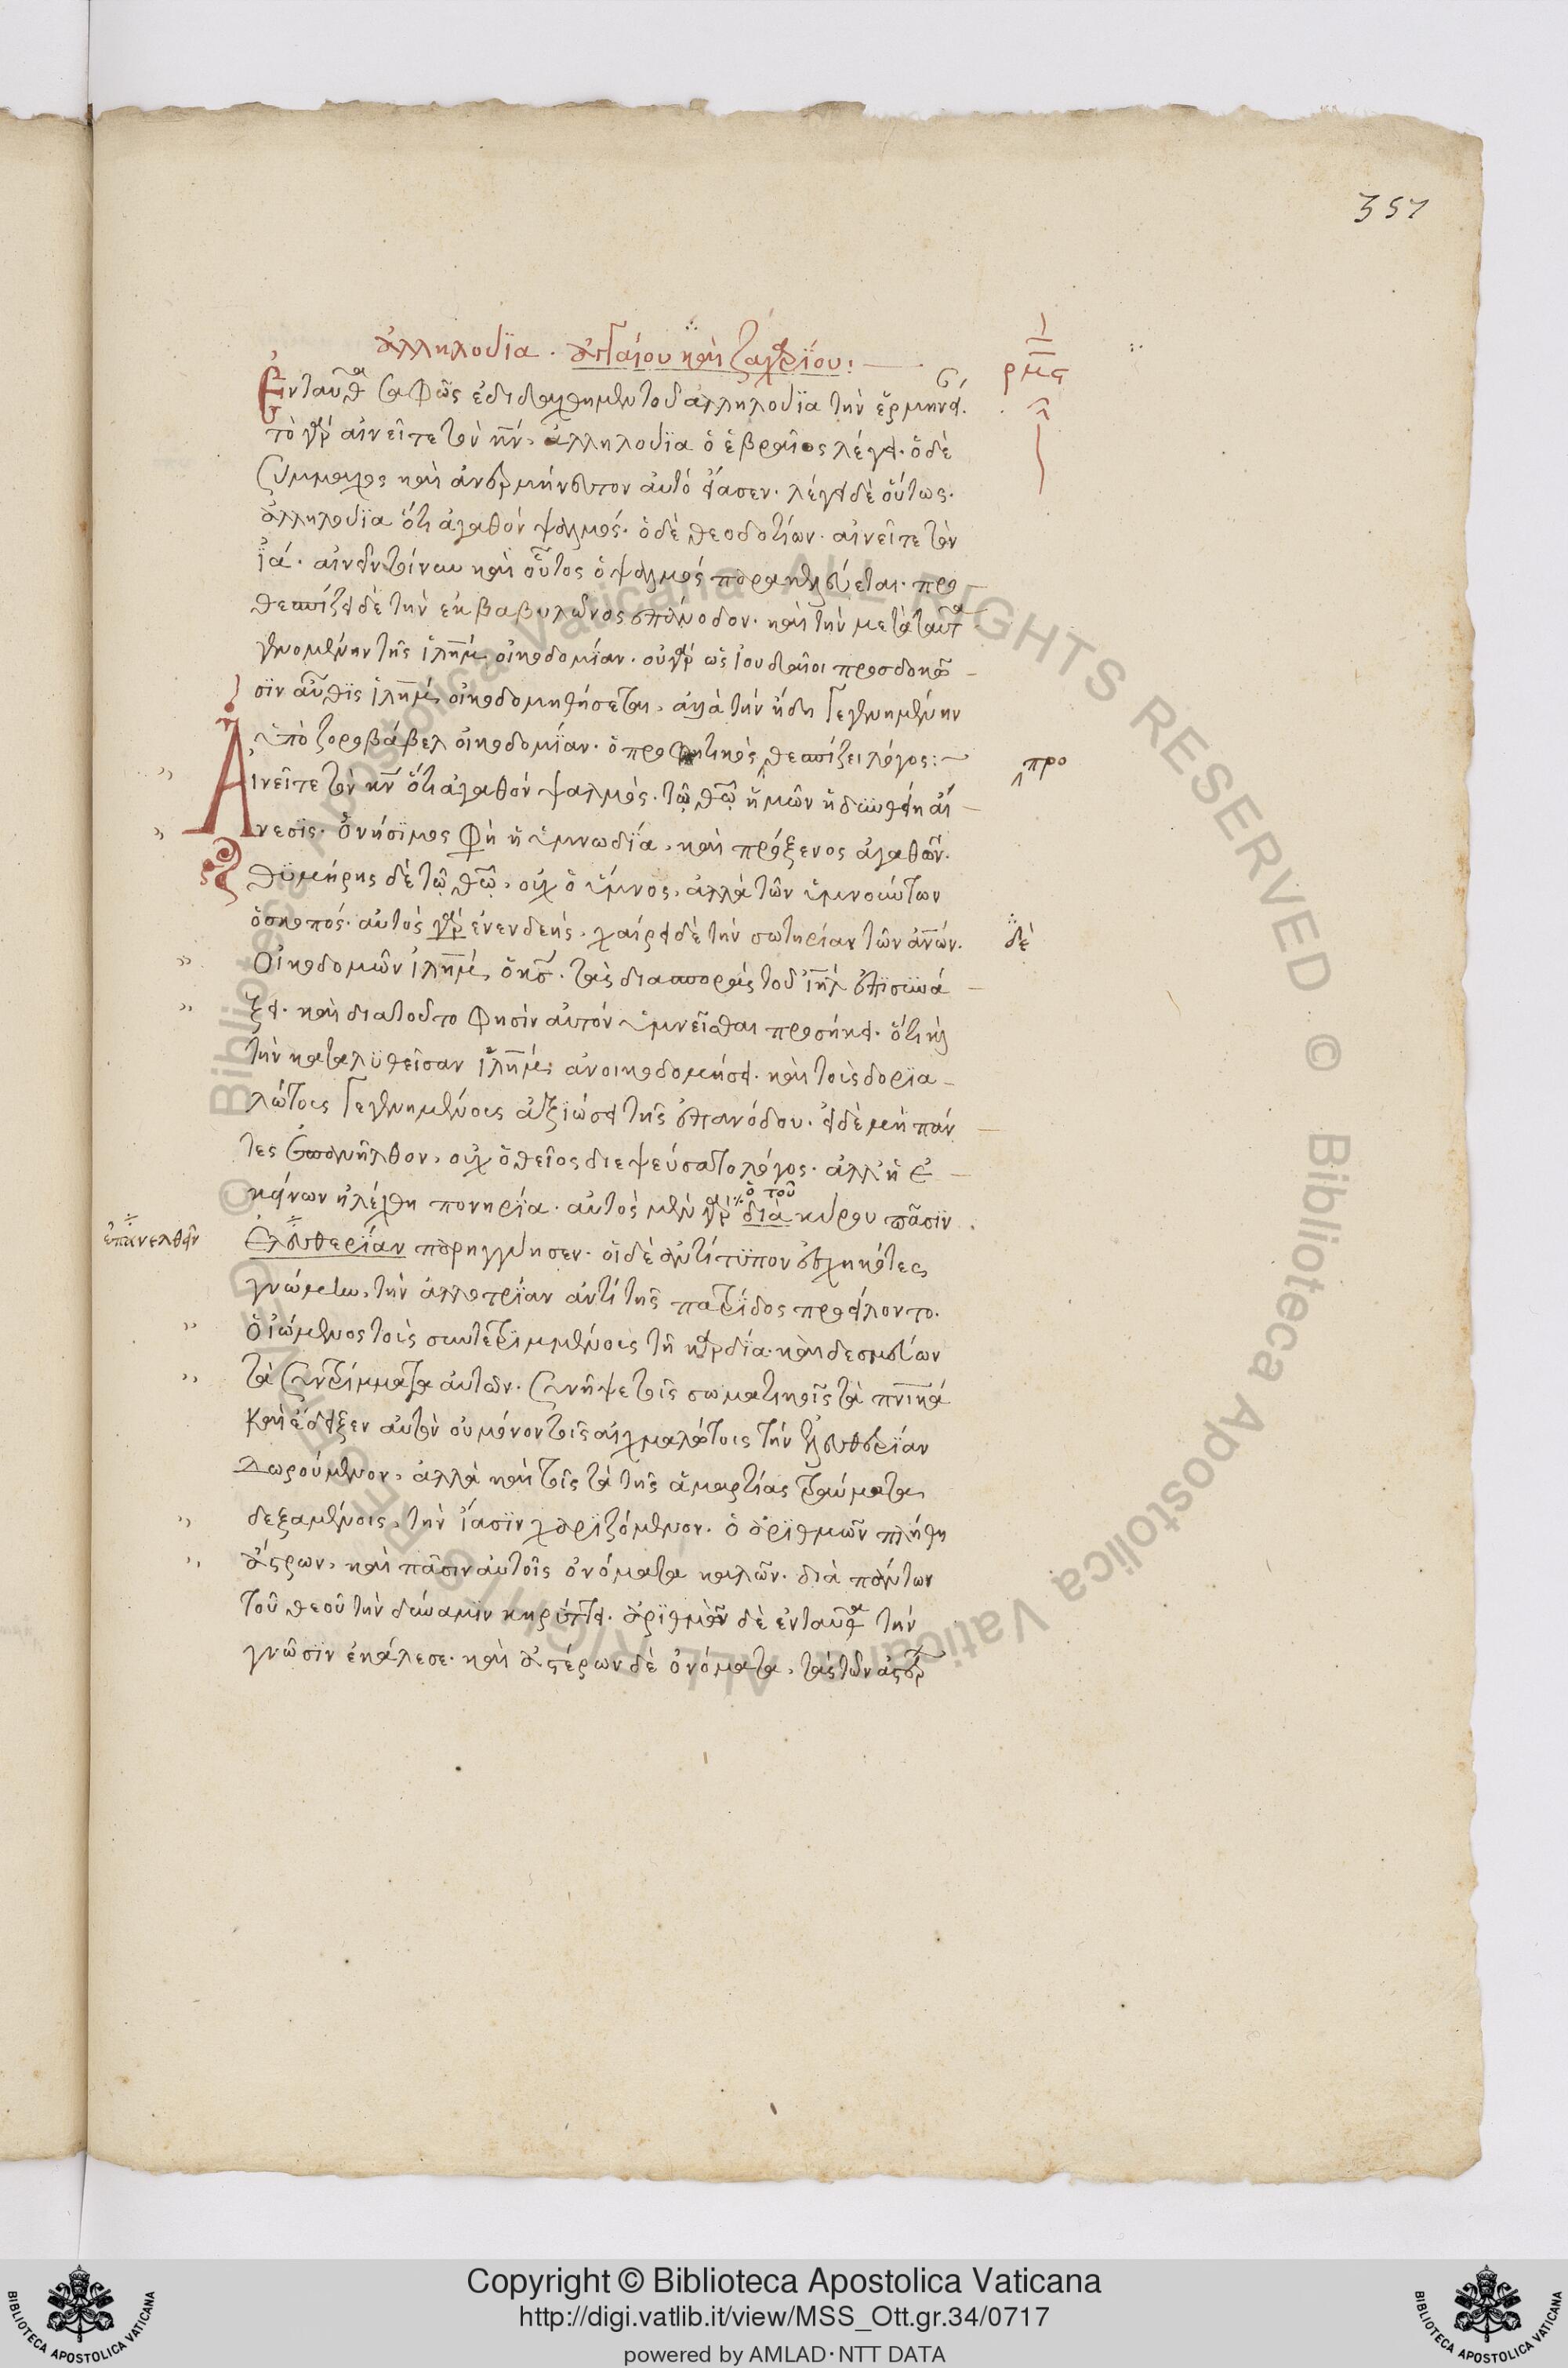 351
ἀλληλούϊα · ἀγγαίου καὶ ζαχαρίου :
ρμς
Ενταῦθα σαφῶς ἐδιδάχθημεν τοῦ ἀλληλούϊα τὴν ἑρμηνεί
τὸ γὰρ αἰνεῖτε τὸν κν, ἀλληλούϊα ὁ ἑβραῖος λέγει. ὁ δὲ
Σύμμαχος καὶ ἀνερμήνευτον αὐτὸ εἴασεν. λέγει δὲ οὕτως.
ἀλληλούϊα ὅτι ἀγαθὸν ψαλμός. ὁ δὲ θεοδοτίων. αἰνεῖτε τὸν
ἰά. αἰνεῖν τοίνυν καὶ οὗτος ὁ ψαλμός παρακελεύεται. προ
θεσπίζει δὲ τὴν ἐκ βαβυλῶνος ἐπάνοδον. καὶ τὴν μετὰ ταῦτα
γενομένην τῆς ἰλημ οἰκοδομίαν. οὐ γὰρ ὡς ἰουδαῖοι προσδοκῶ
σϊν αὖθϊς ἰλημ οἰκοδομηθήσεται, ἀλλὰ τὴν ἤδη γεγενημένην
ὑπὸ ζοροβάβελ οἰκοδομίαν. ὁ προφητικὸς θεσπίζει λόγος :
προ
Αἰνεῖτε τὸν κν ὅτι ἀγαθὸν ψαλμὸς. τῷ θῷ ἡμῶν ἡδυνθείη αἴ
νεσϊς. ὀνήσϊμος φη ἡ ὑμνωδία, καὶ πρόξενος ἀγαθῶν.
θυμήρης δὲ τῷ θῷ, οὐχ ὁ ὕμνος, ἀλλὰ τῶν ὑμνούντων
ὁ σκοπός. αὐτὸς γὰρ ἀνενδεής, χαίρει δὲ τὴν σωτηρίαν τῶν ἀνων.
δὲ
Οἰκοδομῶν ἰλημ ὁ κς. τὰς διασπορὰς τοῦ ιηλ ἐπισυνά
ξει. καὶ διὰ τοῦτο φησὶν αὐτὸν ὑμνεῖσθαι προσήκει. ὅτι καὶ
τὴν καταλυθεῖσαν ἰλημ ἀνοικοδομήσει. καὶ τοὺς δορϊα
λώτους γεγενημένους ἀξϊώσει τῆς ἐπανόδου. εἰ δὲ μὴ πάν
τες ἐπανῆλθον, οὐχ ὁ θεῖος διεψεύσατο λόγος. ἀλλ' ἡ ἐ
κείνων ἠλέγχθη πονηρία. αὐτὸς μὲν γὰρ διὰ κύρου πᾶσϊν
ὁ τοῦ
ἐπανελθεῖν
ἐλευθερίαν παρηγγύησεν. οἱ δὲ ἀντίτυπον ἐσχηκότες
γνώμην, τὴν ἀλλοτρίαν ἀντὶ τῆς πατρίδος προείλοντο.
Ὁ ἰώμενος τοὺς συντετριμμένους τῆ καρδία. καὶ δεσμεύων
τὰ συντρίμματα αὐτῶν. συνῆψε τοῖς σωματικοῖς τὰ πνικὰ
καὶ ἔδειξεν αὐτὸν οὐ μόνον τοῖς αἰχμαλώτοις τὴν ἐλευθερίαν
δωρούμενον, ἀλλὰ καὶ τοῖς τὰ τῆς ἁμαρτίας τραύματα
δεξαμένοις, τὴν ἴασϊν χαρϊζόμενον. ὁ ἀρϊθμῶν πλήθη
ἄστρων, καὶ πᾶσιν αὐτοῖς ὀνόματα καλῶν. διὰ πάντων
τοῦ θεοῦ τὴν δύναμϊν κηρύττει. ἀρϊθμὸν δὲ ἐνταῦθα τὴν
γνῶσϊν ἐκάλεσε. καὶ ἀστέρων δὲ ὀνόματα, τὰς τῶν ἀστέρ
Copyright © Biblioteca Apostolica Vaticana
http://digi.vatlib.it/view/MSS_Ott.gr.34/0717
powered by AMLAD·NTT DATA